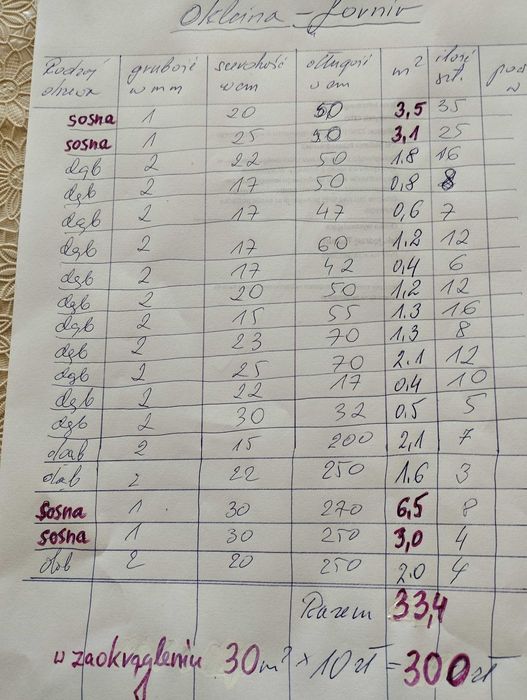 Okleina - fornir
Rodzaj drewna grubość w mm szerokość w cm długość w cm m² ilość szt.
sosna 1 20 50 3,5 35
sosna 1 25 50 3,1 25
dąb 2 22 50 1.8 16
dąb 2 17 50 0,8 8
dąb 2 17 47 0,6 7
dąb 2 17 60 1.2 12
dąb 2 17 42 0,4 6
dąb 2 20 50 1,2 12
dąb 2 15 55 1.3 16
dąb 2 23 70 1.3 8
dąb 2 25 70 2.1 12
dąb 2 22 17 0.4 10
dąb 2 30 32 0.5 5
dąb 2 15 200 2,1 7
dąb 2 22 250 1.6 3
sosna 1 30 270 6,5 8
sosna 1 30 250 3,0 4
dąb 2 20 250 2.0 4
Razem 33,4
w zaokrągleniu 30 m² × 10 zł = 300 zł